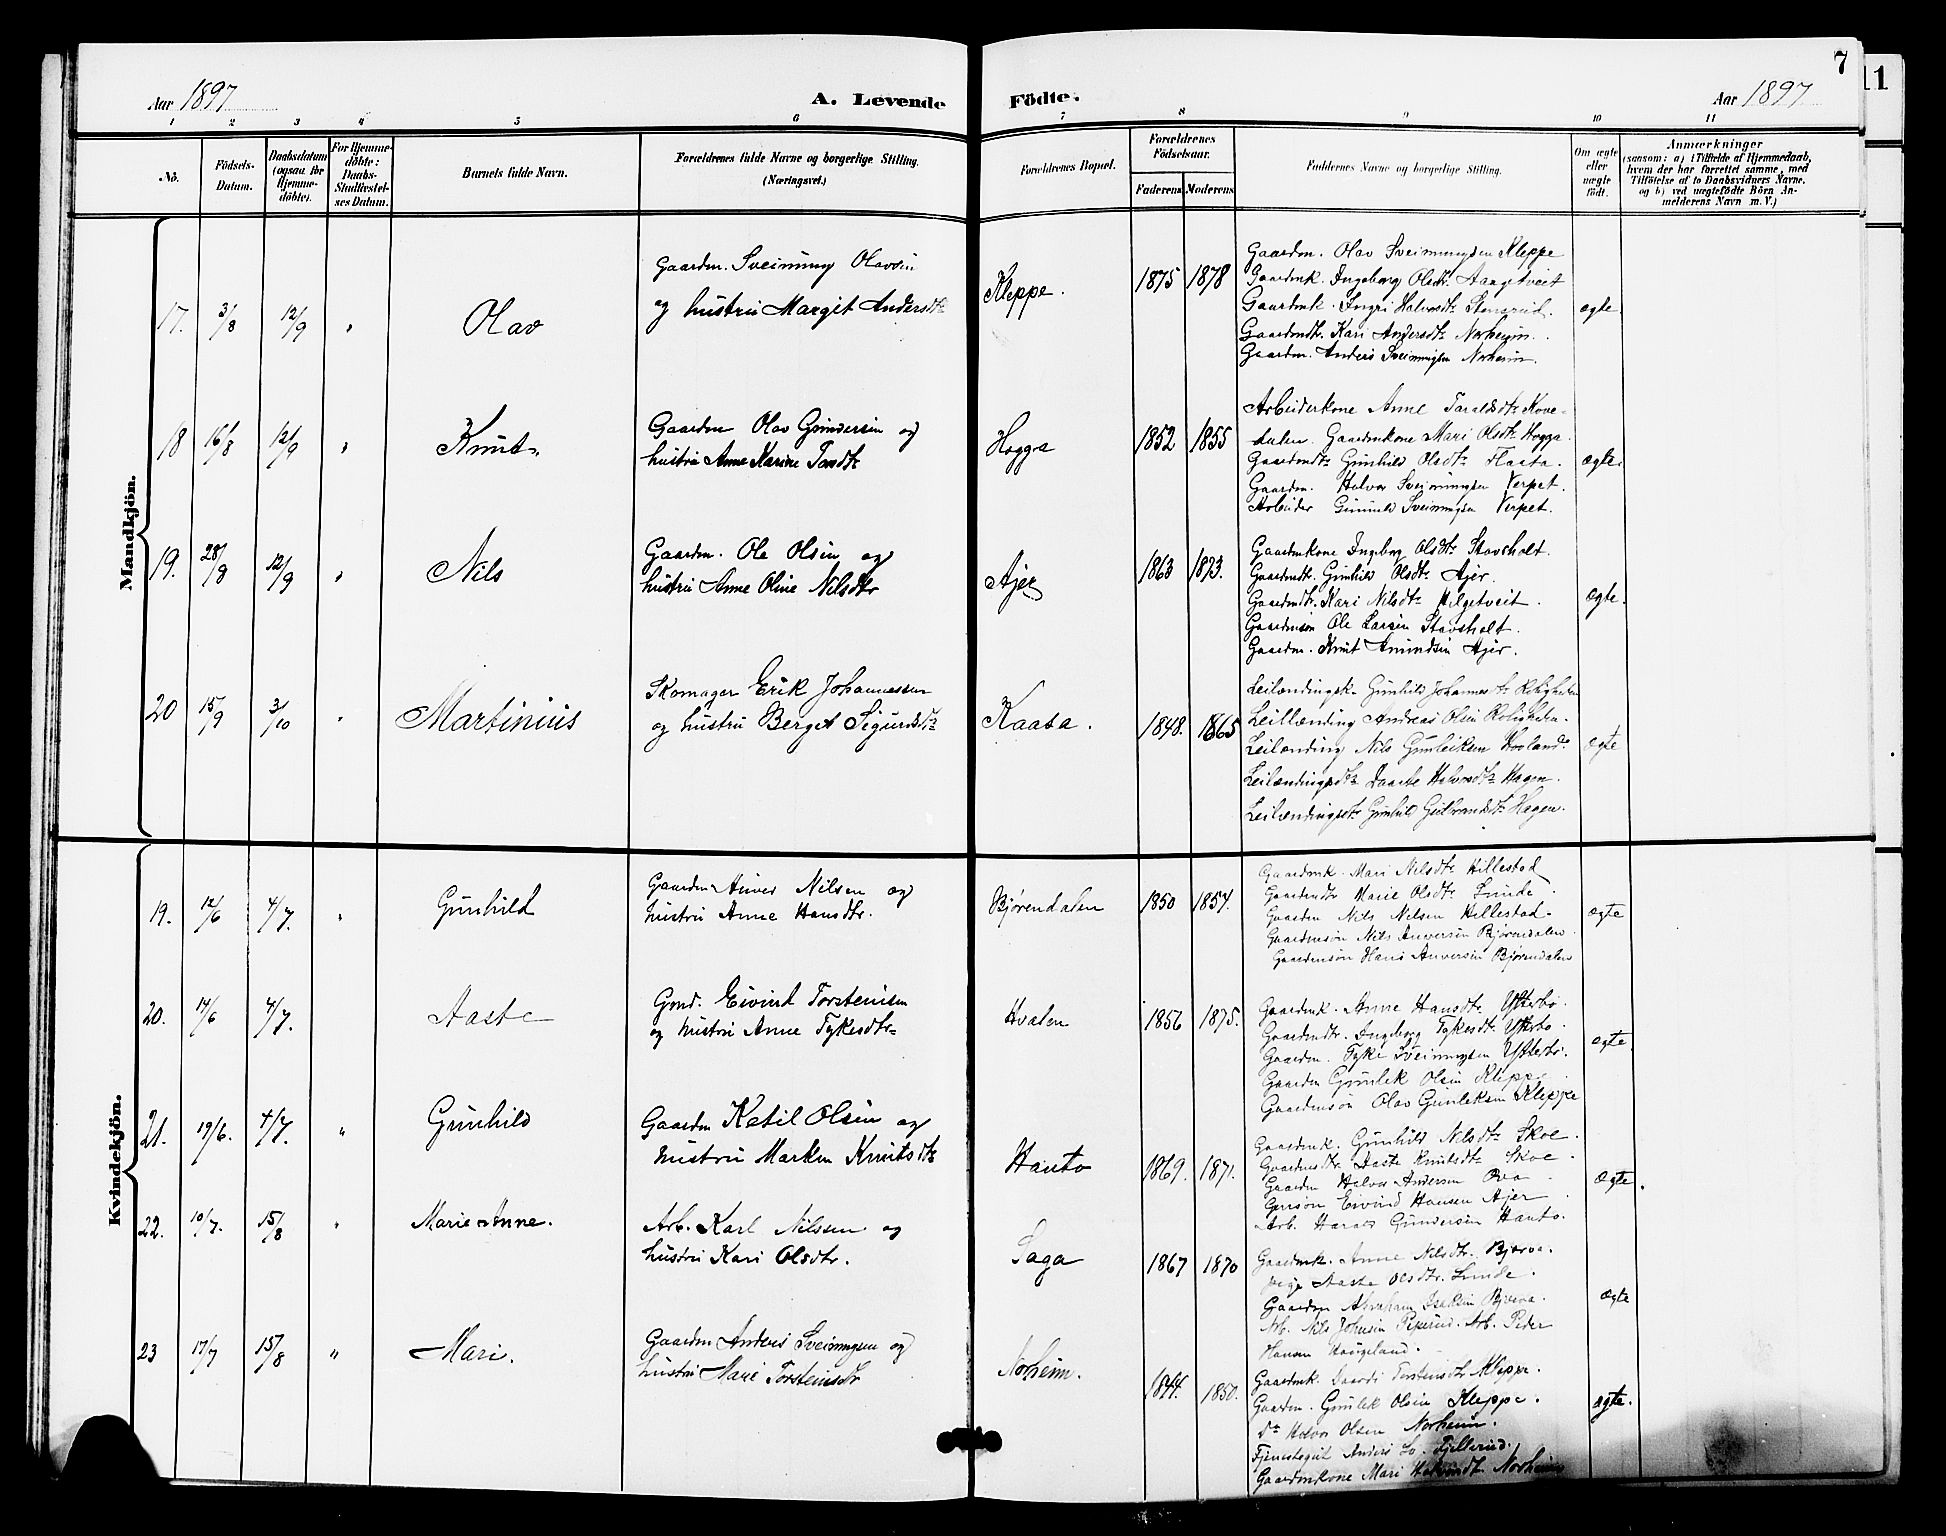 7
11
Aar 1897
A. Levende
Födte.
Aar 1897
1 2 3 4 5 6 7 8 9 10 11
No.
Födsels-
Datum.
Daabsdatum
(ogsaa for
Hjemme-
döbte).
For Hjemme-
döbte:
Daabs-
Stadfæstel-
ses Datum.
Barnets fulde Navn.
Forældrenes fulde Navne og borgerlige Stilling.
(Næringsvei.)
Forældrenes Bopæl.
Forældrenes
Födselsaar.
Faderens
Moderens
Faddernes Navne og borgerlige Stilling.
Om ægte
eller
uægte
födt.
Anmærkninger
(saasom: a) i Tilfælde af Hjemmedaab,
hvem der har forrettet samme, med
Tilföielse af to Daabsvidners Navne.
og b) ved uægtefödte Börn An-
melderens Navn m. V.)
Mandkjön.
17. 3/8 12/9 "
Olav
Gaardm. Sveinung Olavsen
og hustru Margit Andersdtr
Kleppe.
1875 1878
Gaardm. Olav Sveinungsen Kleppe
Gaardmk. Ingeborg Olsdtr. Aasgetveit
Gaardmk. Ingri Halvorsdtr Stensrud.
Gaardmdtr. Kari Andersdtr Norheim.
Gaardm. Anders Sveinungsen Norheim.
ægte
18 16/8 12/9 "
Knut
Gaardm Olav Gundersen og
hustru Anne Karine Torsdtr
Hogga
1852 1855
Arbeiderkone Anne Taraldsdtr Kove-
dalen. Gaardmkone Mari Olsdtr Hogga.
Gaardmdtr Gunhild Olsdtr Flaata.
Gaardm. Halvor Sveinungsen Verpet.
Arbeider Gunnuld Sveinungsen Verpet.
ægte.
19. 28/8 12/9 "
Nils
Gaardm. Ole Olsen og
hustru Anne Oline Nilsdtr
Ajer
1863 1873.
Gaardmkone Ingeborg Olsdtr Stavsholt.
Gaardmdtr. Gunhild Olsdtr Ajer.
Gaardmdtr. Kari Nilsdtr Helgetveit.
Gaardmsön Ole Larsen Stavsholt.
Gaardm. Knut Amundsen Ajer.
ægte.
20 15/9 3/10 "
Martinius
Skomager Erik Johannessen
og hustru Berget Sigurdsdtr
Kaasa.
1848. 1865
Leilændingsk. Gunhild Johannesdtr Roligheten
Leillænding Andreas Olsen Roligheten.
Leilænding Nils Gunleiksen Hovland.
Leilændingsdtr Daarte Halvorsdtr Hagen.
Leilændingsdtr Gunhild Gulbrandsdtr Hagen.
ægte
Kvindekjön.
19. 12/6 4/7. "
Gunhild
Gaardm Anver Nilsen og
hustru Anne Hansdtr.
Bjørendalen
1850 1854.
Gaardmk. Mari Nilsdtr. Hillestad
Gaardmdtr Marie Olsdtr. Lunde.
Gaardm Nils Nilsen Hillestad.
Gaardmsön Nils Anversen Bjørendalen.
Gaardmsön Hans Anversen Bjørendalen
ægte
20. 14/6 4/7.
Aaste
Gmd. Eivind Torstensen
og hustru Anne Tykesdtr
Hvalen
1856 1875.
Gaardmk. Anne Hansdtr. Ytterbö.
Gaardmdtr. Ingeborg Tykesdtr. Ytterbö.
Gaardm. Tyke Sveinungsen Ytterbö.
Gaardm Gunlek Olsen Kleppe.
Gaardmsön Olav Gunleksen Kleppe
ægte.
21. 19/6. 4/7. "
Gunhild
Gaardm Ketil Olsen og
hustru Marken Knutsdtr
Hauto
1869. 1871.
Gaardmk. Gunhild Nilsdtr Skoe.
Gaardmdtr. Aaste Knutsdtr Skoe.
Gaardm Halvor Andersen
Eivind Hansen Ajer
Arb. Harald Gundersen Hauto.
ægte.
22. 10/7. 15/8 "
Marie Anne.
Arb. Karl Nilssen og
hustru Kari Olsdtr.
Saga
1867 1870
Gaardmk. Anne Nilsdtr. Bjerva.
Pige Aaste Olsdtr. Lunde.
Gaardm Abraham Isaksen Bjerva.
Arb. Nils Johnsen Arb. Peder
Hansen Haugeland.
ægte
23 17/7 15/8 "
Mari.
Gaardm Anders Sveinungsen og
hustru Mari Torsteinsdtr
Norheim.
1844. 1850.
Gaardmk. Torstensdtr Kleppe.
Gaardm. Gunlek Olsen Kleppe.
Do Halvor Olsen Norheim.
Tjenestegut Anders Lo. Fjellerud.
Gaardmkone Mari Halvorsdtr. Norheim
ægte.